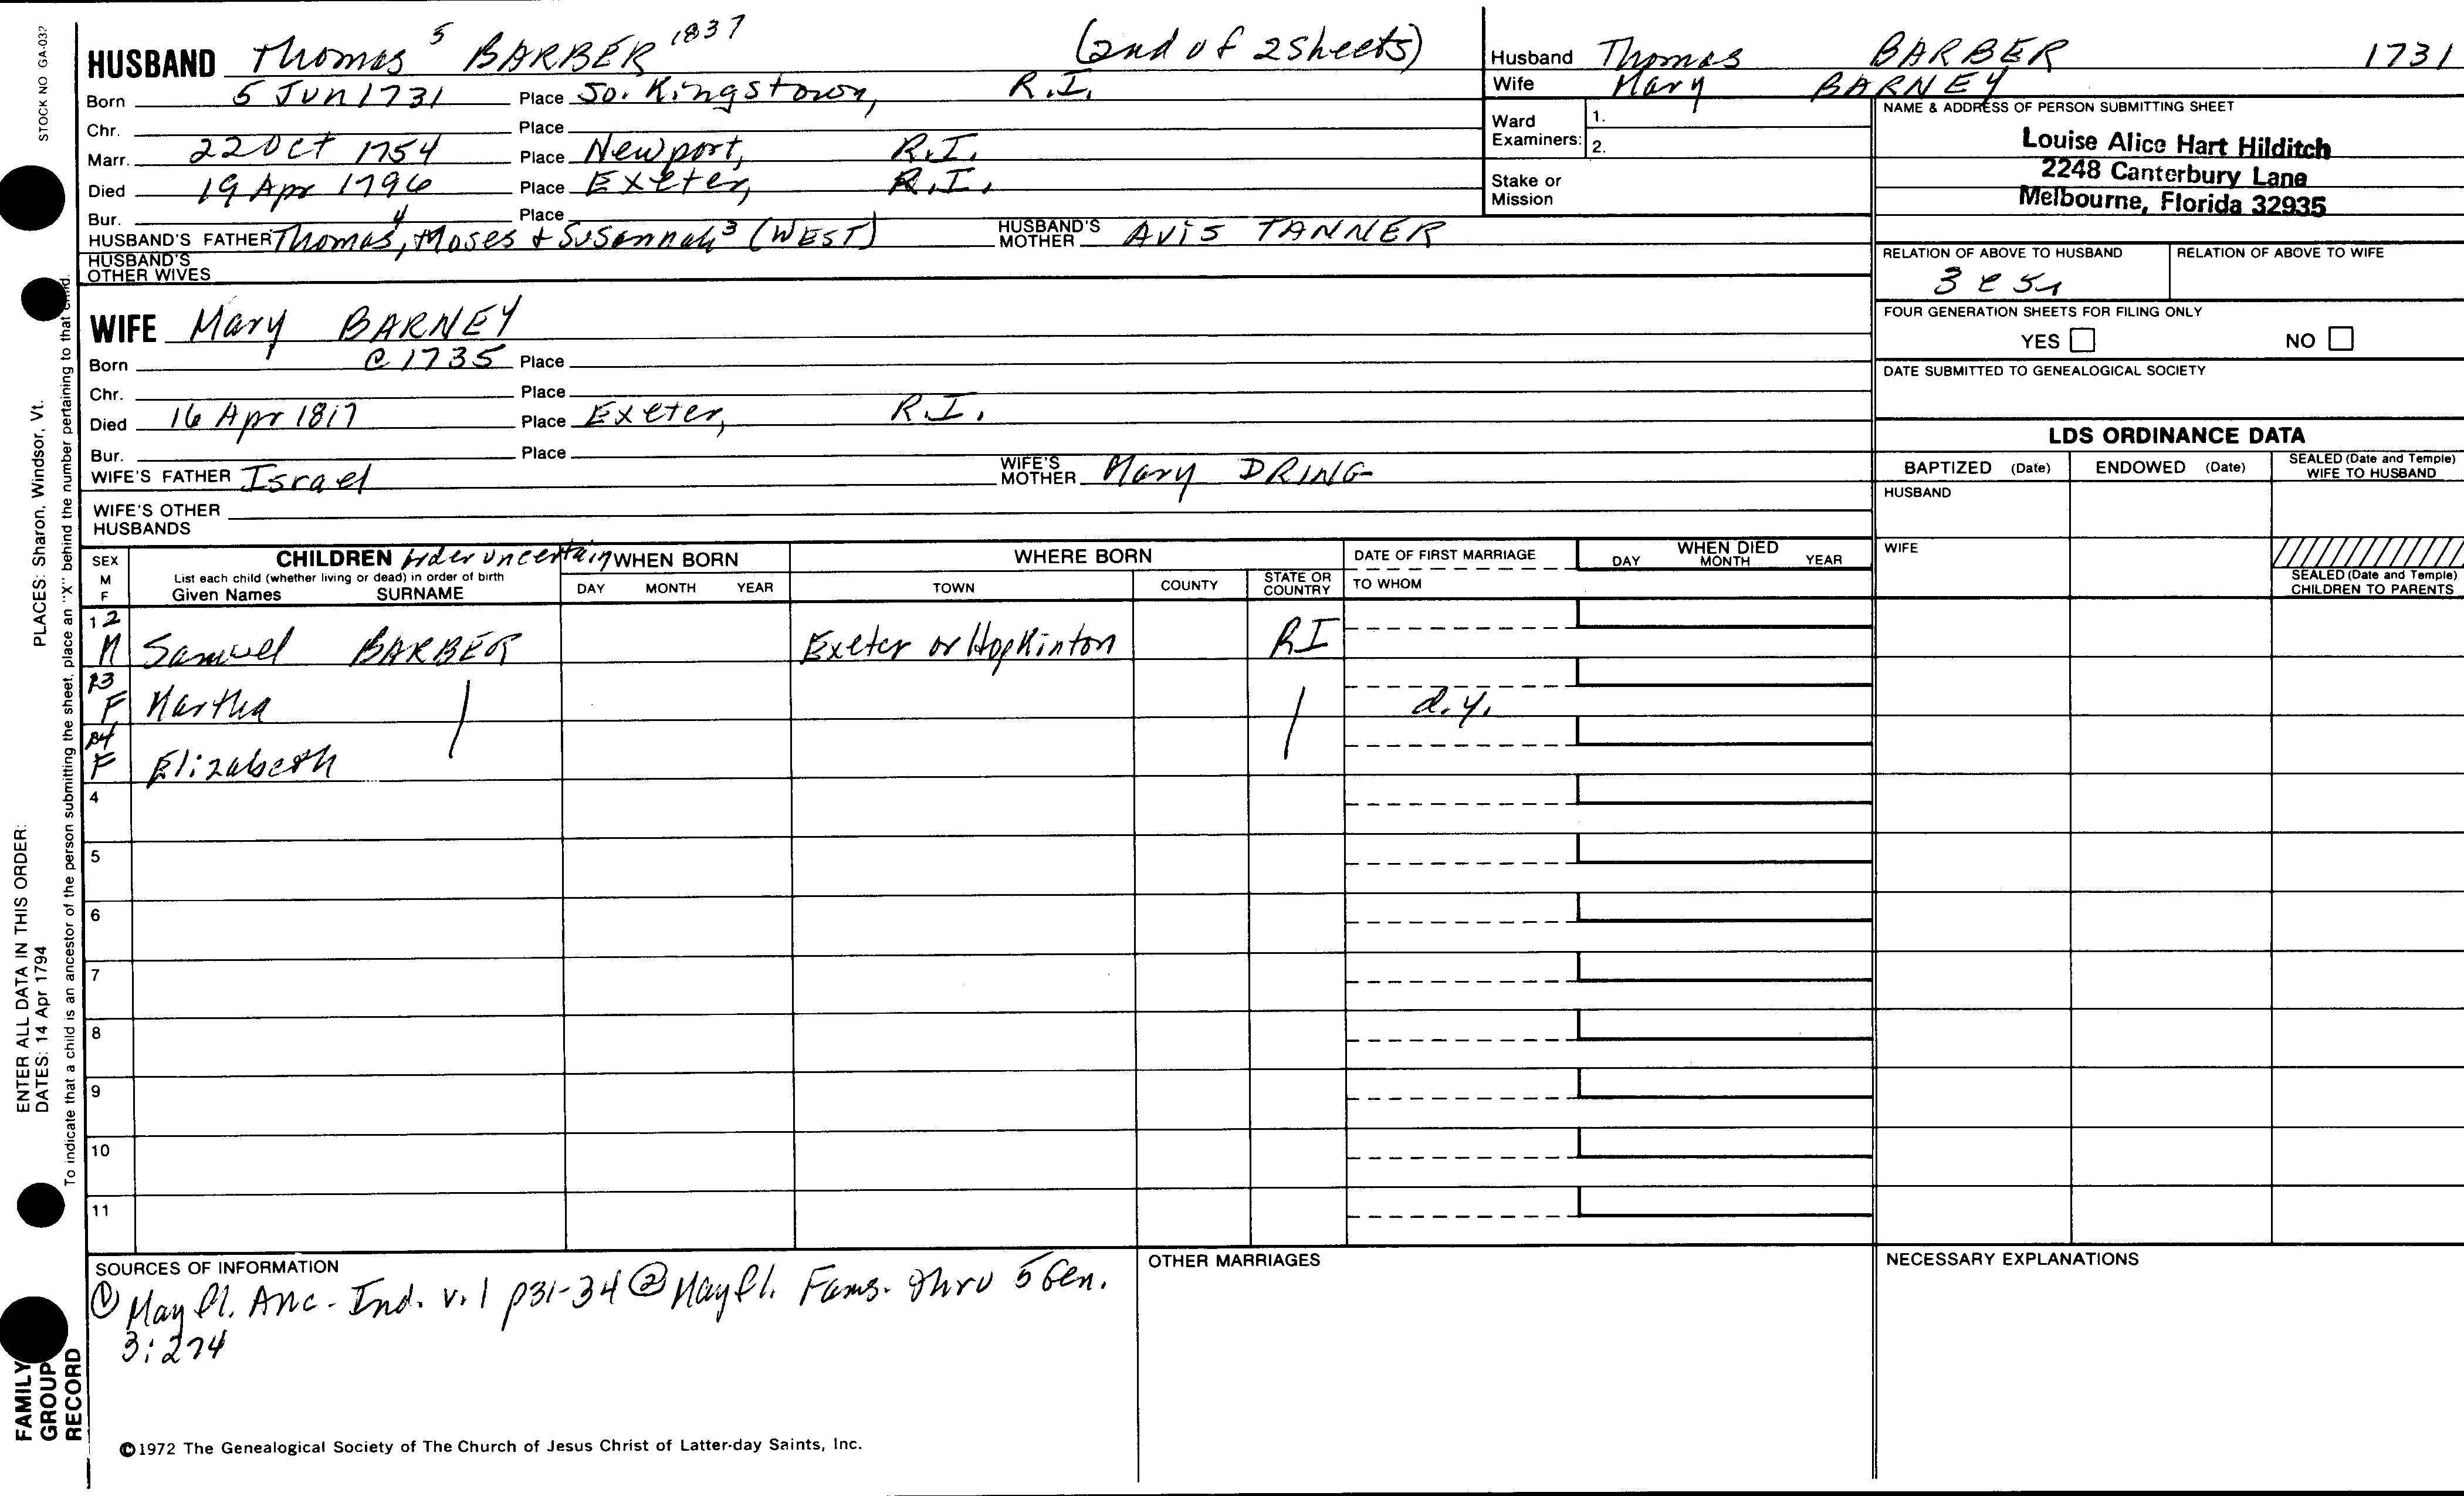 STOCK NO GA-03?
HUSBAND Thomas 5 BARBER 1837 (2nd of 2 sheets)
Born 5 Jun 1731 Place So. Kingstown, R.I.
Chr. Place
Marr. 22 Oct 1754 Place Newport, R.I.
Died 19 Apr 1796 Place Exeter, R.I.
Bur. Place
HUSBAND'S FATHER Thomas 4, Moses & Susannah 3 (WEST) HUSBAND'S MOTHER AVIS TANNER
HUSBAND'S OTHER WIVES
WIFE Mary BARNEY
Born c 1735 Place
Chr. Place
Died 16 Apr 1817 Place Exeter, R.I.
Bur. Place
WIFE'S FATHER Israel WIFE'S MOTHER Mary DRING
WIFE'S OTHER HUSBANDS
Husband Thomas BARBER 1731
Wife Mary BARNEY
Ward Examiners: 1.
2.
Stake or Mission
NAME & ADDRESS OF PERSON SUBMITTING SHEET
Louise Alice Hart Hilditch
2248 Canterbury Lane
Melbourne, Florida 32935
RELATION OF ABOVE TO HUSBAND RELATION OF ABOVE TO WIFE
FOUR GENERATION SHEETS FOR FILING ONLY
YES NO
DATE SUBMITTED TO GENEALOGICAL SOCIETY
LDS ORDINANCE DATA
BAPTIZED (Date) ENDOWED (Date) SEALED (Date and Temple) WIFE TO HUSBAND
HUSBAND
WIFE
SEALED (Date and Temple) CHILDREN TO PARENTS
SEX M F
CHILDREN order uncertain
List each child (whether living or dead) in order of birth
Given Names SURNAME
WHEN BORN
DAY MONTH YEAR
WHERE BORN
TOWN COUNTY STATE OR COUNTRY
DATE OF FIRST MARRIAGE
TO WHOM
WHEN DIED
DAY MONTH YEAR
12
M Samuel BARBER Exeter or Hopkinton RI
13
F Martha d.y.
14
F Elizabeth
4
5
6
7
8
9
10
11
SOURCES OF INFORMATION
① Mayfl. Anc. - Ind. v. 1 p31-34 ② Mayfl. Fams. thru 5 Gen.
3:274
OTHER MARRIAGES
NECESSARY EXPLANATIONS
©1972 The Genealogical Society of The Church of Jesus Christ of Latter-day Saints, Inc.
ENTER ALL DATA IN THIS ORDER:
DATES: 14 Apr 1794
PLACES: Sharon, Windsor, Vt.
To indicate that a child is an ancestor of the person submitting the sheet, place an "X" behind the number pertaining to that child.
FAMILY GROUP RECORD